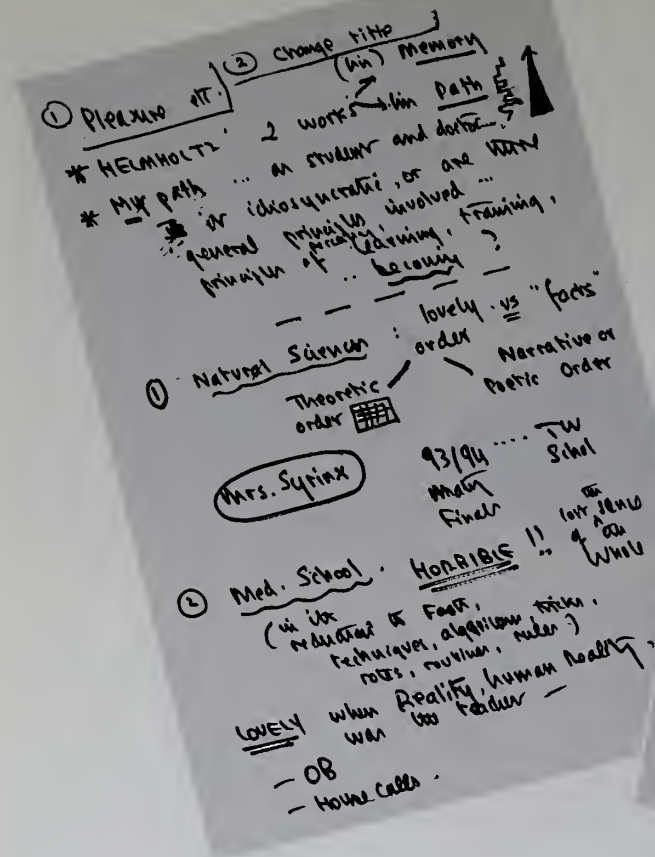 ① Pleasure etc. ② change title
* HELMHOLTZ' 2 works (his) Memory
his path
* My path ... as student and doctor...
is idiosyncratic, or are there
general principles involved ...
principles of learning, training,
... becoming ?
① Natural Sciences : lovely order vs "facts"
Theoretic order
Narrative or Poetic Order
Mrs. Syrinx
93/94 .... TW
Anatomy Schol
Finals
② Med. School . HORRIBLE !! lost the sense of the Whole
(in its reductions to Facts,
techniques, algorithms, tricks,
rotes, routines, rules)
LOVELY when Reality, human Reality,
was the teacher —
— OB
— House calls .